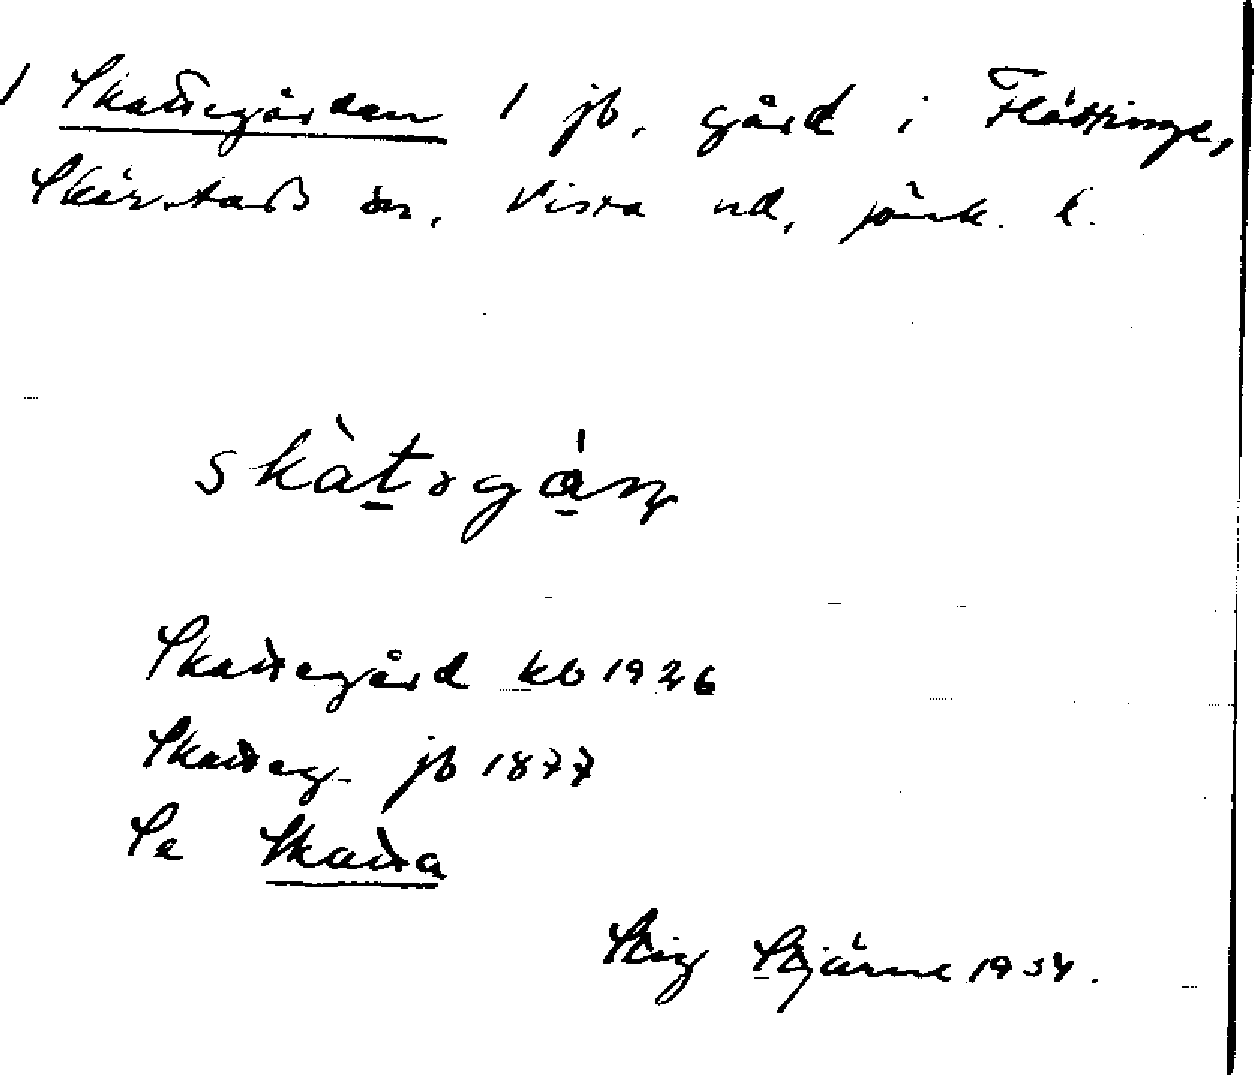 1 Skattegården 1 jb. gård i Flättinge,
Skärstads sn. Vista hd. Jönk. l.
skàtəgán
Skattegård kb 1926
Skatteg. jb 1877
Se Skatta
Stig Stjärne 1934.